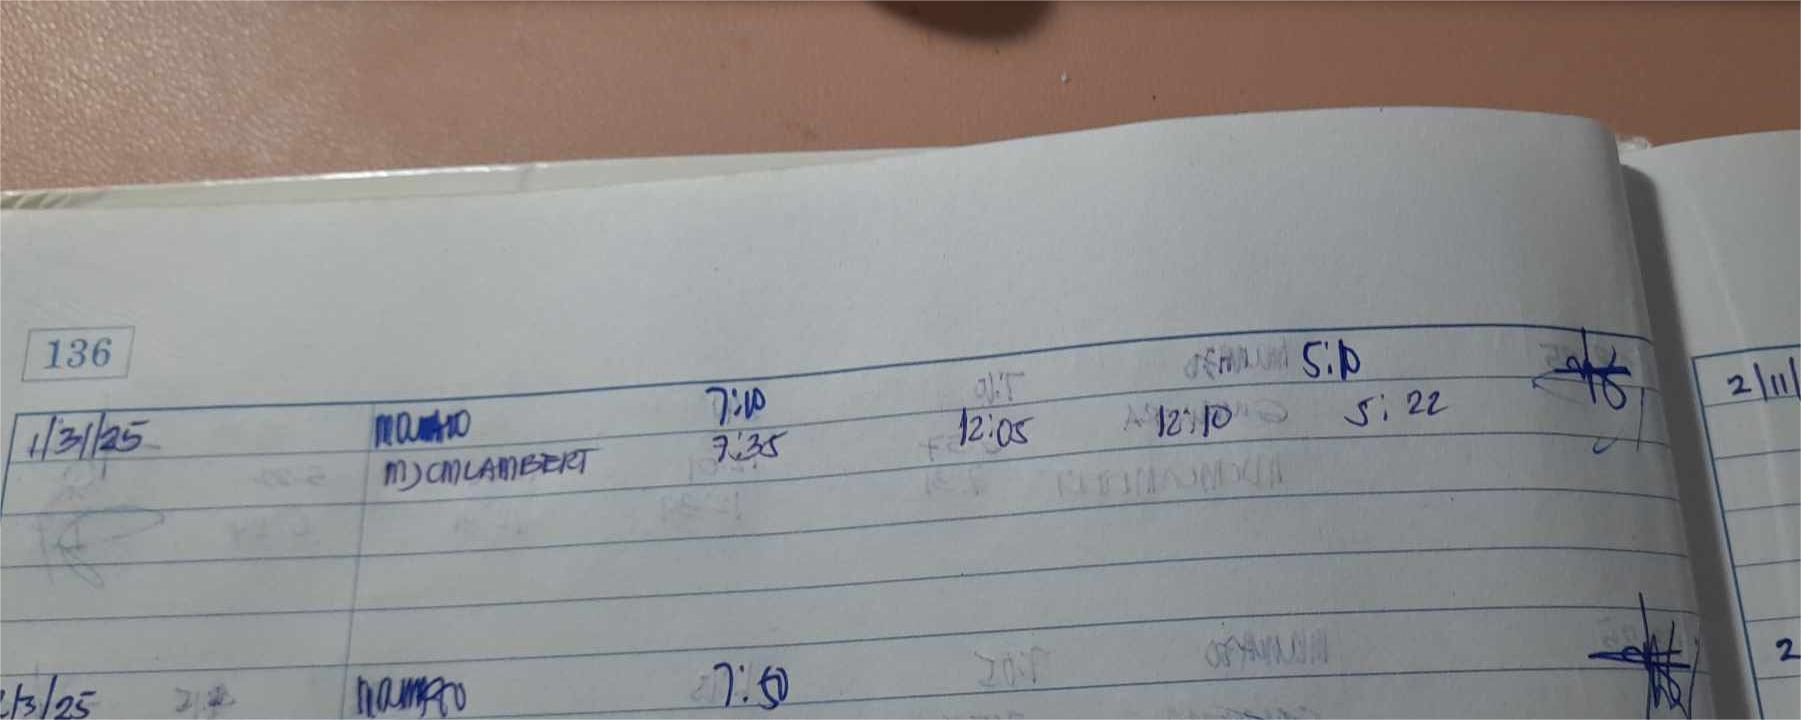 136
1/31/25 7:10 5:10
MJCMLAMBERT 7:35 12:05 12:10 5:22
2/11/
/3/25 7:50
2